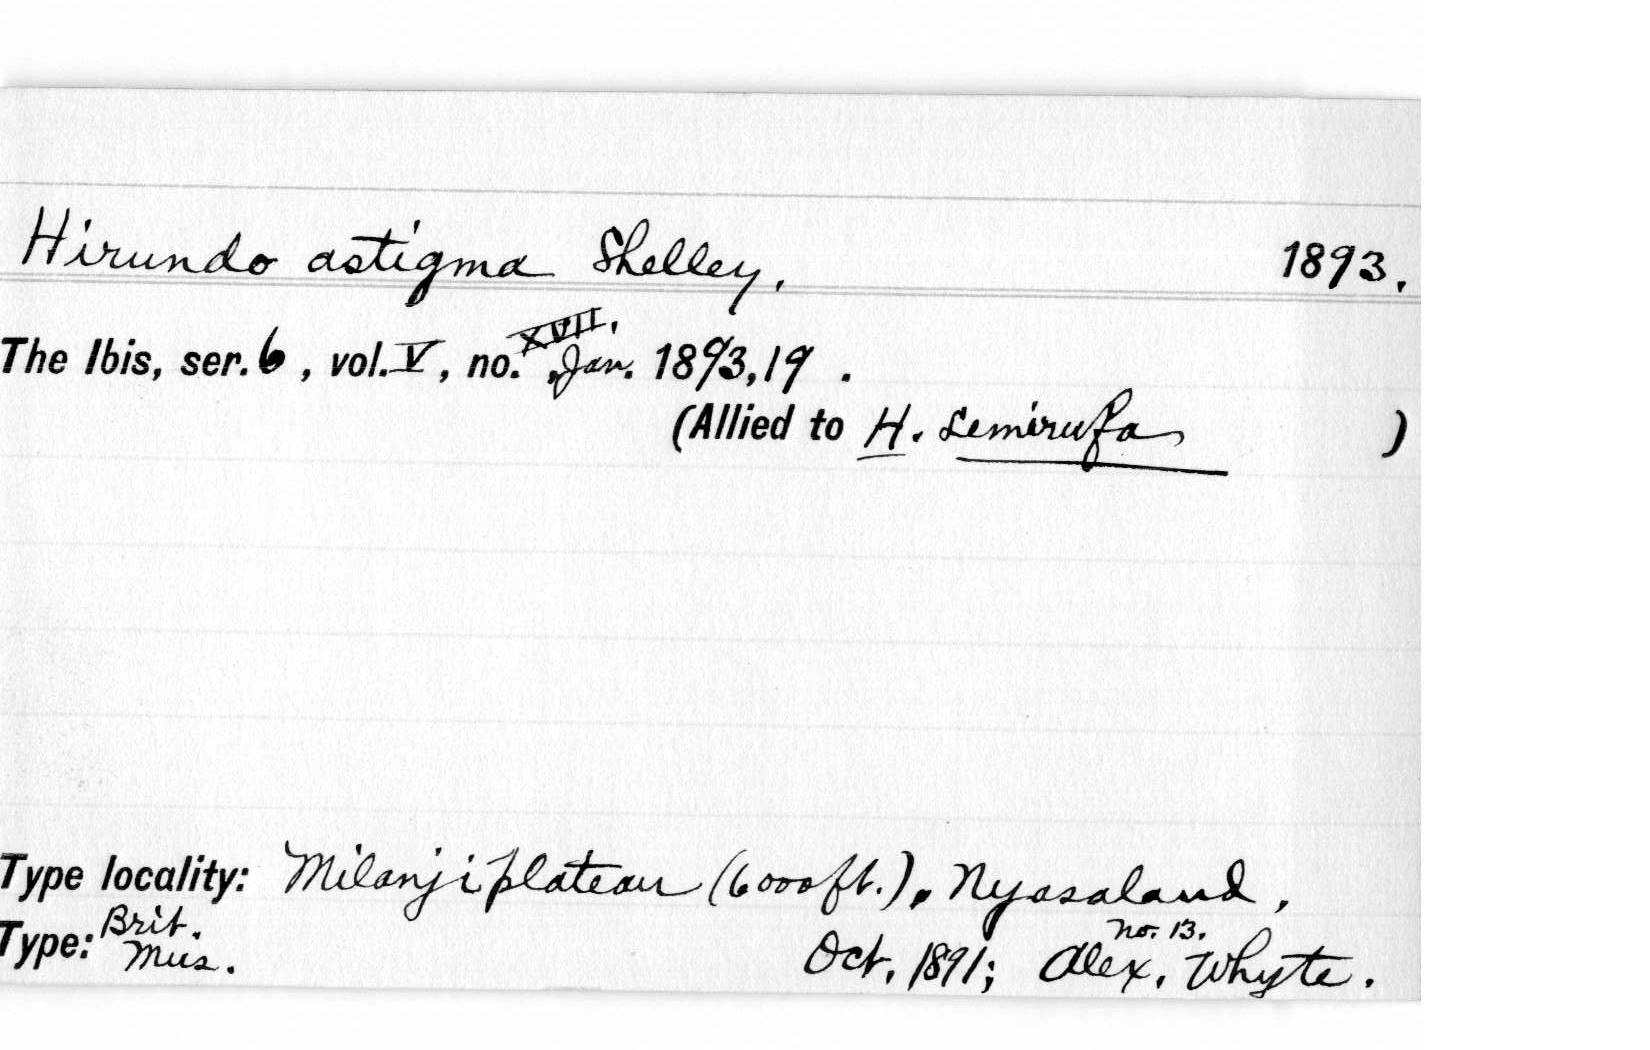 Hirundo astigma Shelley, 1893.
The Ibis, ser. 6, vol. V, no. XVII, Jan. 1893, 19.
(Allied to H. semirufa )
Type locality: Milanji plateau (6000 ft.), Nyasaland,
Type: Brit. Mus. Oct, 1891; Alex, Whyte. no. 13.